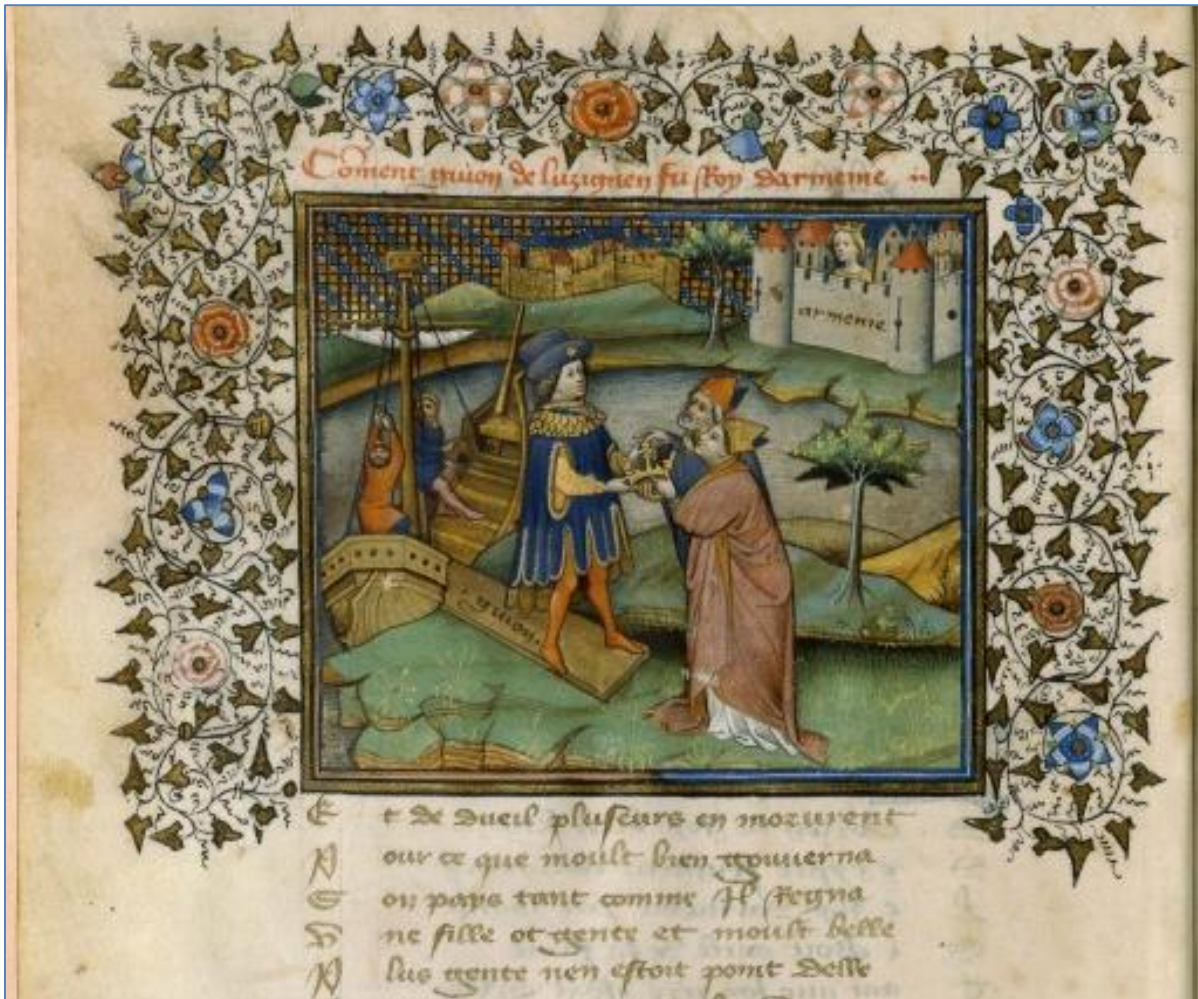 Coment guion de luzignen fu Roy darmenie
armenie
guion
Et de dueil pluseurs en moeurent
Pour ce que moult bien gouuerna
Son pays tant comme Il Regna
Vne fille ot gente et moult belle
Plus gente nen estoit point delle